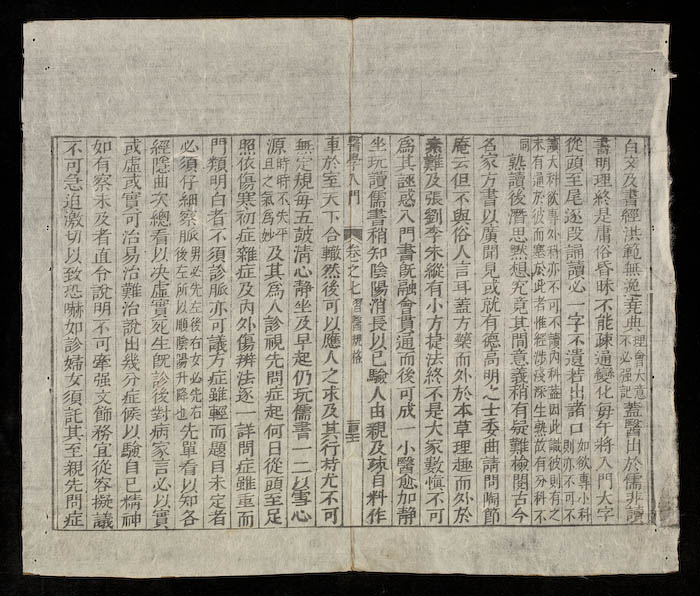 白文及書經洪範無逸堯典理會大意不必強記蓋醫出於儒非讀
書明理終是庸俗昏昧不能疎通變化每午將入門大字
從頭至尾逐段誦讀必一字不遺若出諸口如欲專小科則亦不可不
讀大科欲專外科亦不可不讀內科蓋因此識彼則有之未有通於彼而塞於此者惟經涉淺深生熟故有分科不同
熟讀後潛思默想究竟其間意義稍有疑難檢閱古今
名家方書以廣聞見或就有德高明之士委曲請問陶節
庵云但不與俗人言耳蓋方藥而外於本草理趣而外於
素難及張劉李朱縱有小方捷法終不是大家數愼不可
爲其誣惑入門書旣融會貫通而後可成一小醫愈加靜
坐玩讀儒書稍知陰陽消長以已驗人由親及疎自料作
醫學入門 卷之七 習醫規格
車於室天下合轍然後可以應人之求及其行持尤不可
無定規每五鼓淸心靜坐及早起仍玩儒書一二以雪心
源時時不失平旦之氣爲妙及其爲人診視先問症起何日從頭至足
照依傷寒初症雜症及內外傷辨法逐一詳問症雖重而
門類明白者不須診脈亦可議方症雖輕而題目未定者
必須仔細察脈男必先左後右女必先右後左所以順陰陽升降也先單看以知各
經隱曲次總看以決虛實死生旣診後對病家言必以實
或虛或實可治易治難治說出幾分症候以驗自已精神
如有察未及者直令說明不可牽强文飾務宜從容擬議
不可急迫激切以致恐嚇如診婦女須託其至親先問症